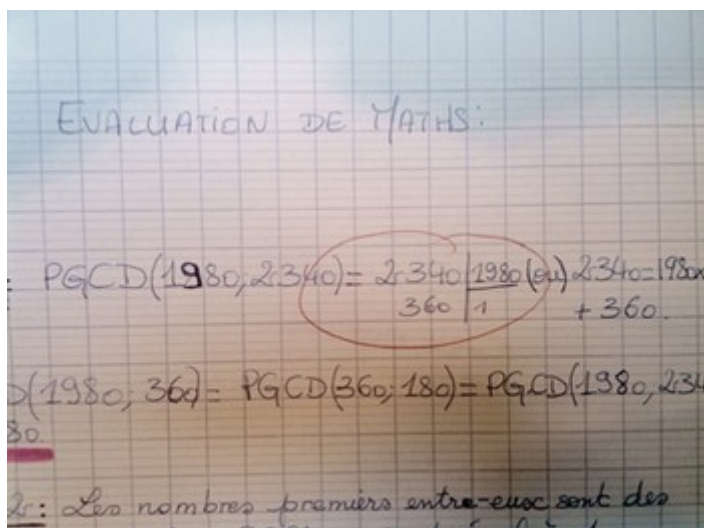 EVALUATION DE MATHS:
PGCD(1980; 2340) = 2340 | 1980 (ou) 2340 = 1980x
360 | 1 + 360.
D(1980; 360) = PGCD(360; 180) = PGCD(1980, 234
80
2: Les nombres premiers entre-eux sont des